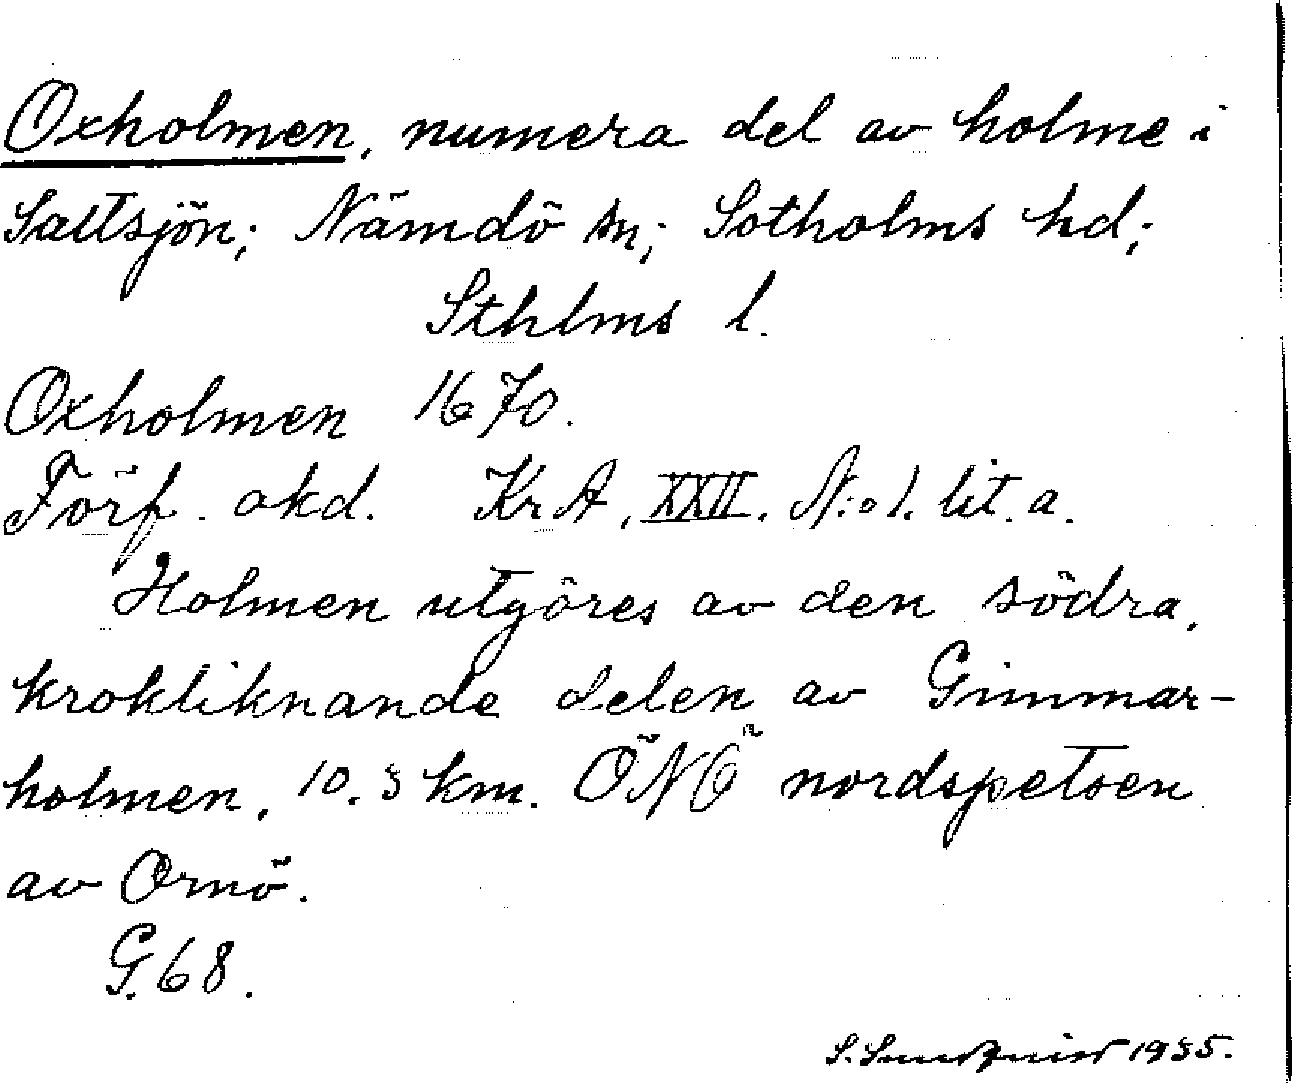 Oxholmen, numera del av holme i
Saltsjön; Nämdö sn; Sotholms hd;
Sthlms l.
Oxholmen 1670.
Förf. okd. KrA, XXII. N:o 1. lit. a.
Holmen utgöres av den södra,
krokliknande delen av Gimmar-
holmen, 10.3 km. ÖNÖ nordspetsen
av Ornö.
G. 68.
S. 1935.